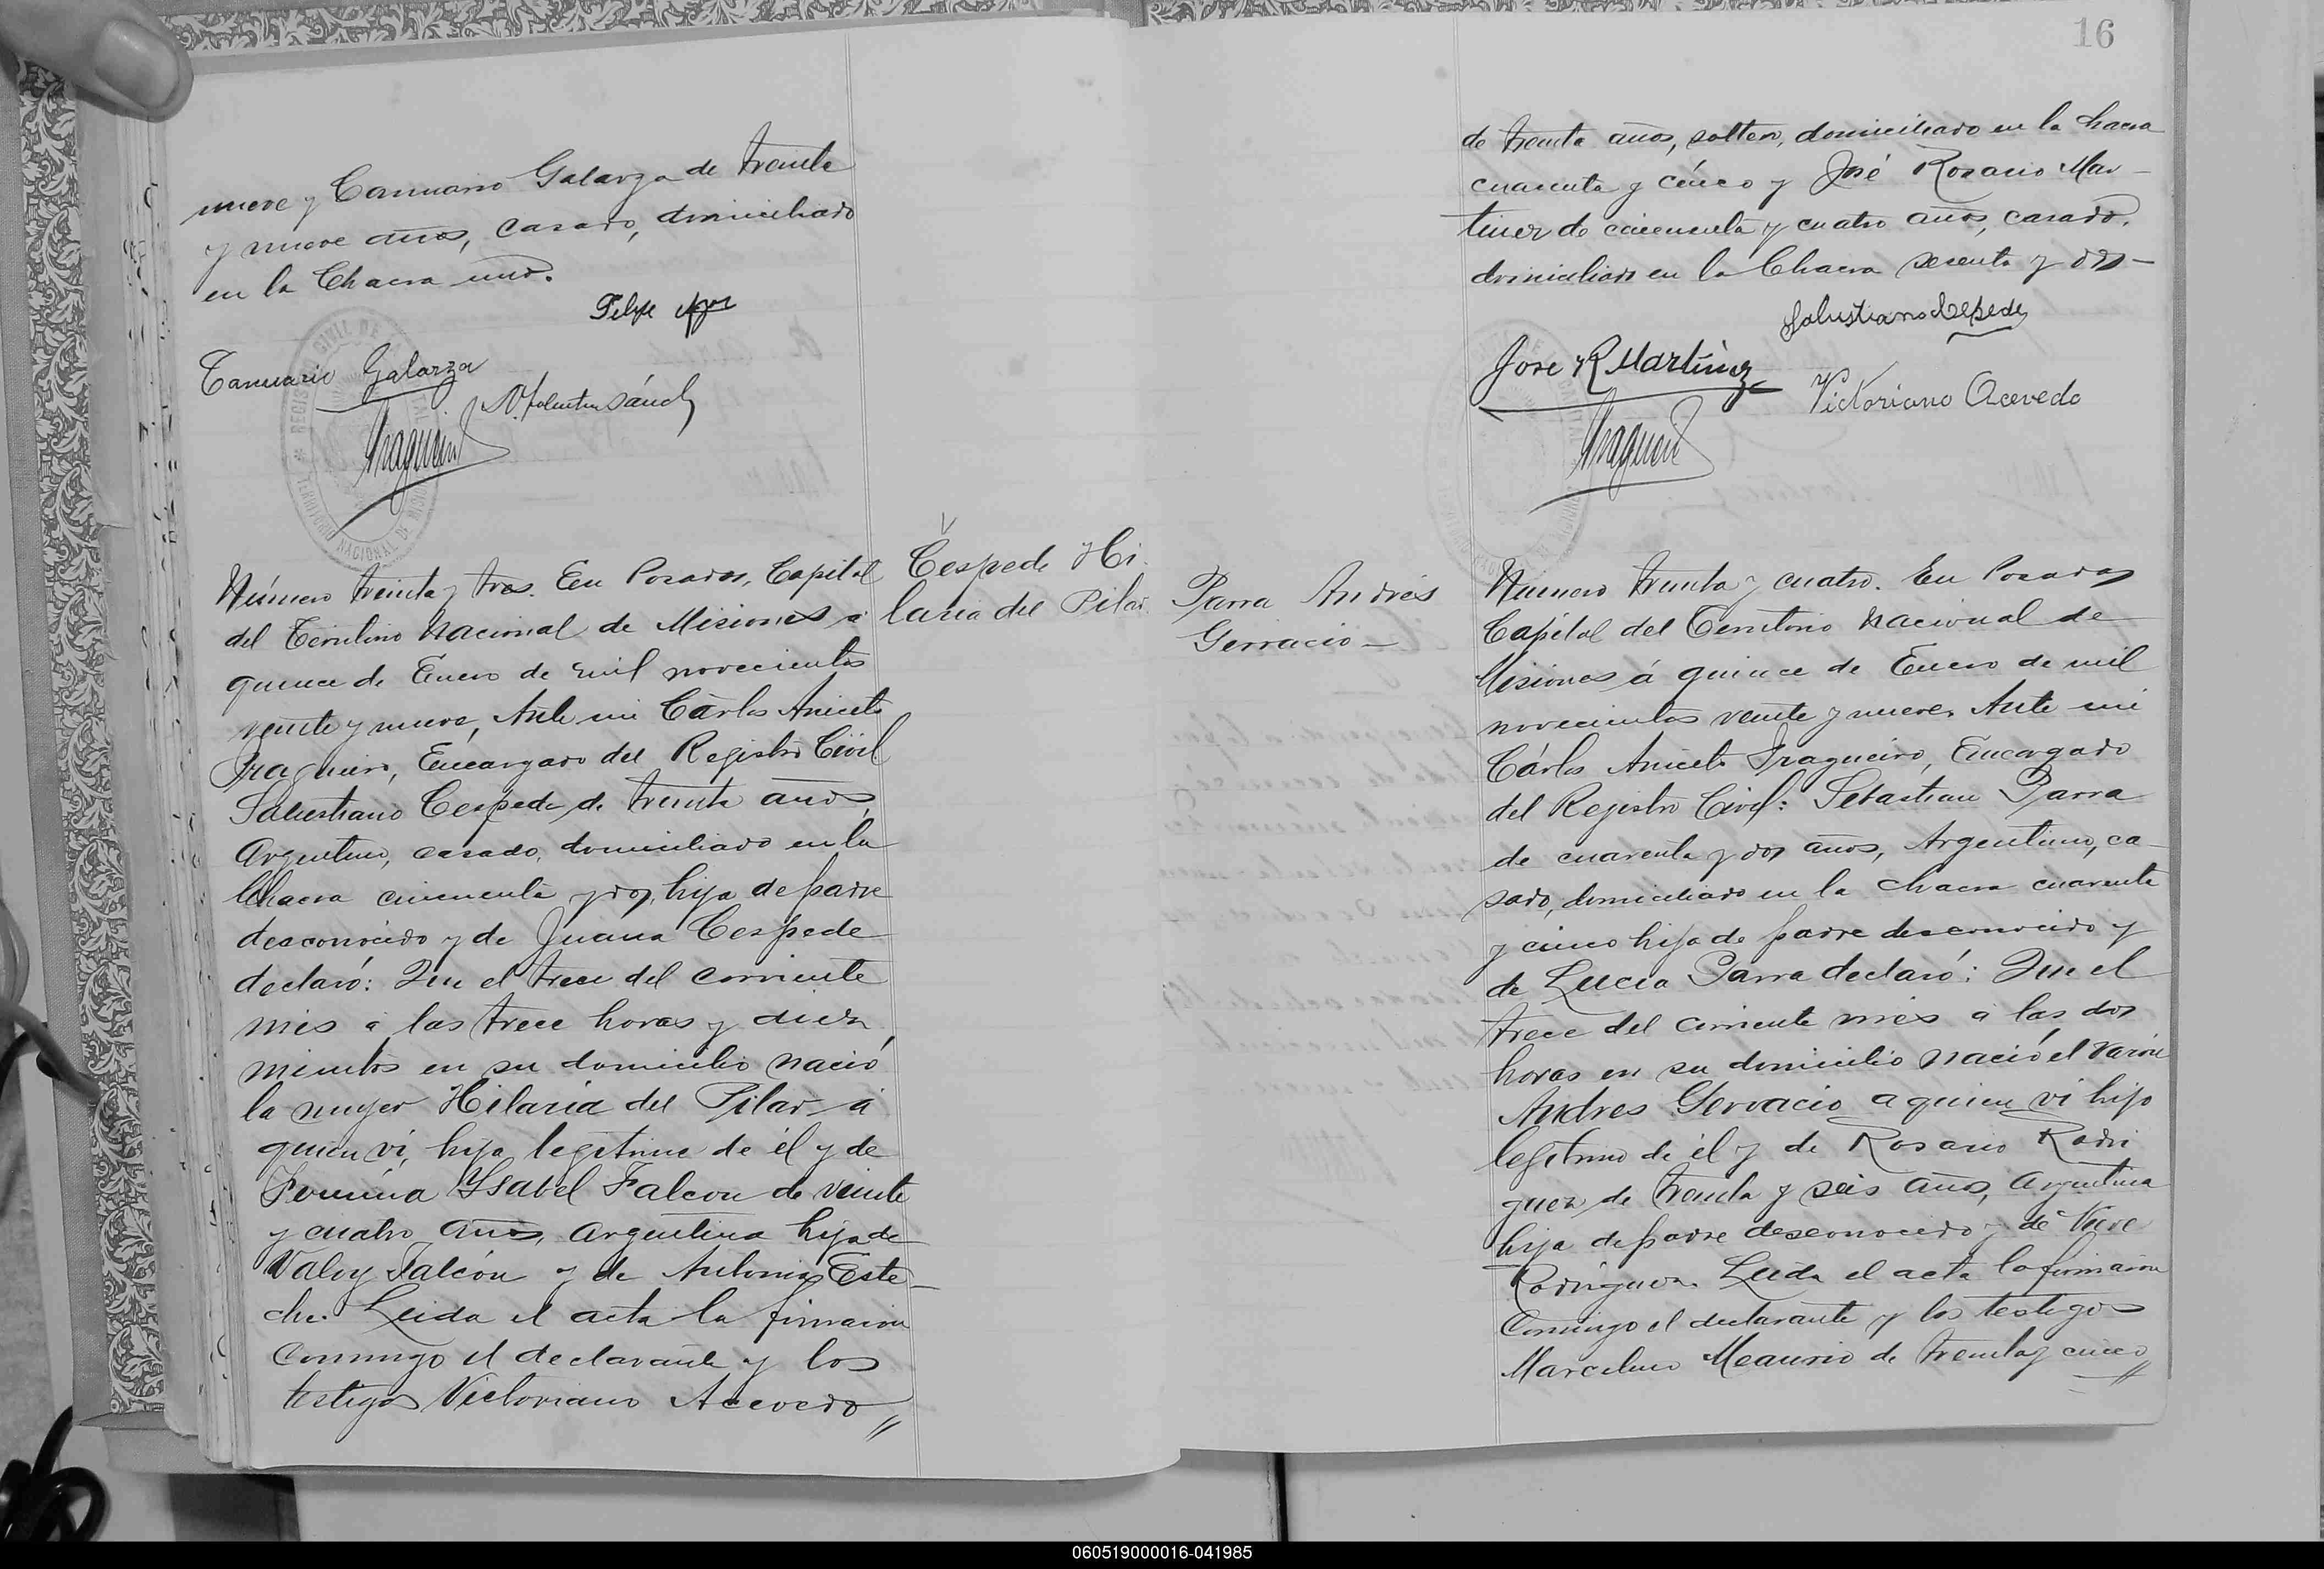 nueve y Januario Galarza de treinta
y nueve años, casado, domiciliado
en la Chacra uno.
Felipe
Januario Galarza
REGISTRO CIVIL DE
TERRITORIO NACIONAL DE
Número treinta y tres. En Posadas, Capital
del Territorio Nacional de Misiones á
quince de Enero de mil novecientos
veinte y nueve, Ante mi Cárlos Aniceto
Fragueiro, Encargado del Registro Civil
Salustiano Cespede de treinta años,
Argentino, casado, domiciliado en la
Chacra cincuenta y dos, hijo de padre
desconocido y de Juana Cespede
declaró: Que el trece del corriente
mes á las trece horas y diez
minutos en su domicilio nació
la mujer Hilaria del Pilar á
quien ví, hija legítima de él y de
Fermina Ysabel Falcon de veinte
y cuatro años, argentina hija de
Valoy Falcón y de Antonia Este-
che. Leida el acta la firmaron
conmigo el declarante y los
testigos Victoriano Acevedo //
Cespede Hi-
laria del Pilar
16
de treinta años, soltero, domiciliado en la chacra
cuarenta y cinco y José Rosario Mar-
tinez de cincuenta y cuatro años, casado,
domiciliado en la Chacra sesenta y dos-
Salustiano Cespede
Jose R Martínez
Victoriano Acevedo
Parra Andrés
Gervacio-
Número treinta y cuatro. En Posadas
Capital del Territorio Nacional de
Misiones á quince de Enero de mil
novecientos veinte y nueve, Ante mi
Cárlos Aniceto Fragueiro, Encargado
del Registro Civil: Sebastian Parra
de cuarenta y dos años, Argentino, ca-
sado, domiciliado en la chacra cuarenta
y cinco hijo de padre desconocido y
de Lucia Parra declaró: Que el
trece del corriente mes á las dos
horas en su domicilio nació el varon
Andres Gervacio a quien ví hijo
legítimo de él y de Rosario Rodri
guez de treinta y seis años, argentina
hija de padre desconocido y de
Rodriguez. Leida el acta la firmaron
conmigo el declarante y los testigos
Marcelino Meaurio de treinta y cinco //
060519000016-041985